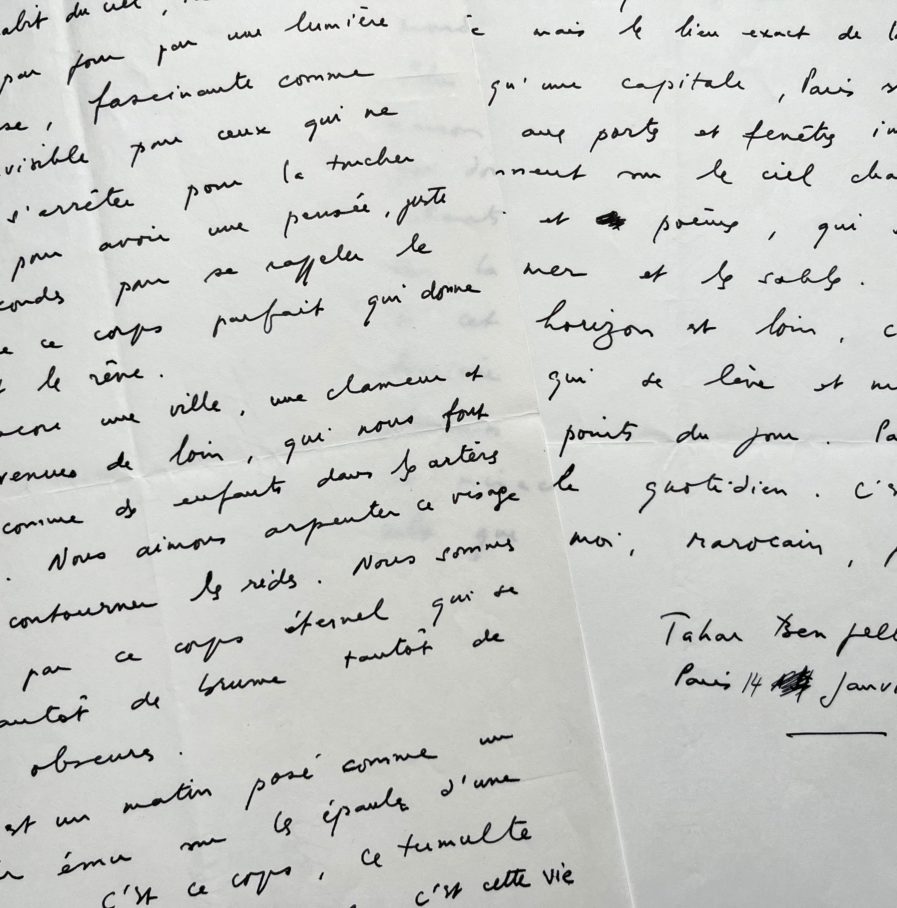 du ciel,
par jour par une lumière
fascinante comme
visible pour ceux qui ne
s'arrêter pour la toucher
pour avoir une pensée, juste
pour se rappeler le
ce corps parfait qui donne
le rêve.
une ville, une clameur et
venues de loin, qui nous font
comme des enfants dans les artères
. Nous aimons arpenter ce visage
contourner les rides. Nous sommes
par ce corps éternel qui se
tantôt de brume tantôt de
obscurs.
est un matin posé comme un
ému sur les épaules d'une
C'est ce corps, ce tumulte
c'est cette vie
mais le lieu exact de
qu'une capitale, Paris
aux ports et fenêtres
donnent sur le ciel
et poèmes, qui
mer et les sables.
horizon est loin,
qui se lève et
points du jour.
le quotidien.
moi, marocain,
Tahar Ben Jell
Paris 14 Janvi